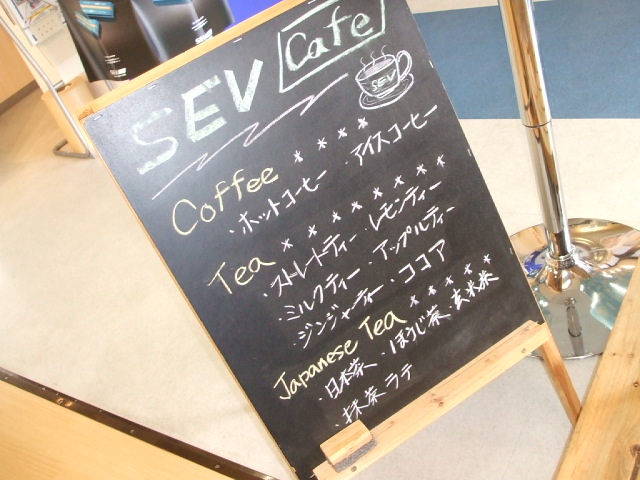 SEV Cafe
SEV
Coffee * * * *
・ホットコーヒー ・アイスコーヒー
Tea * * * * * * * *
・ストレートティー ・レモンティー
・ミルクティー ・アップルティー
・ジンジャーティー ・ココア
Japanese Tea * * * * *
・日本茶 ・ほうじ茶 ・玄米茶
・抹茶ラテ